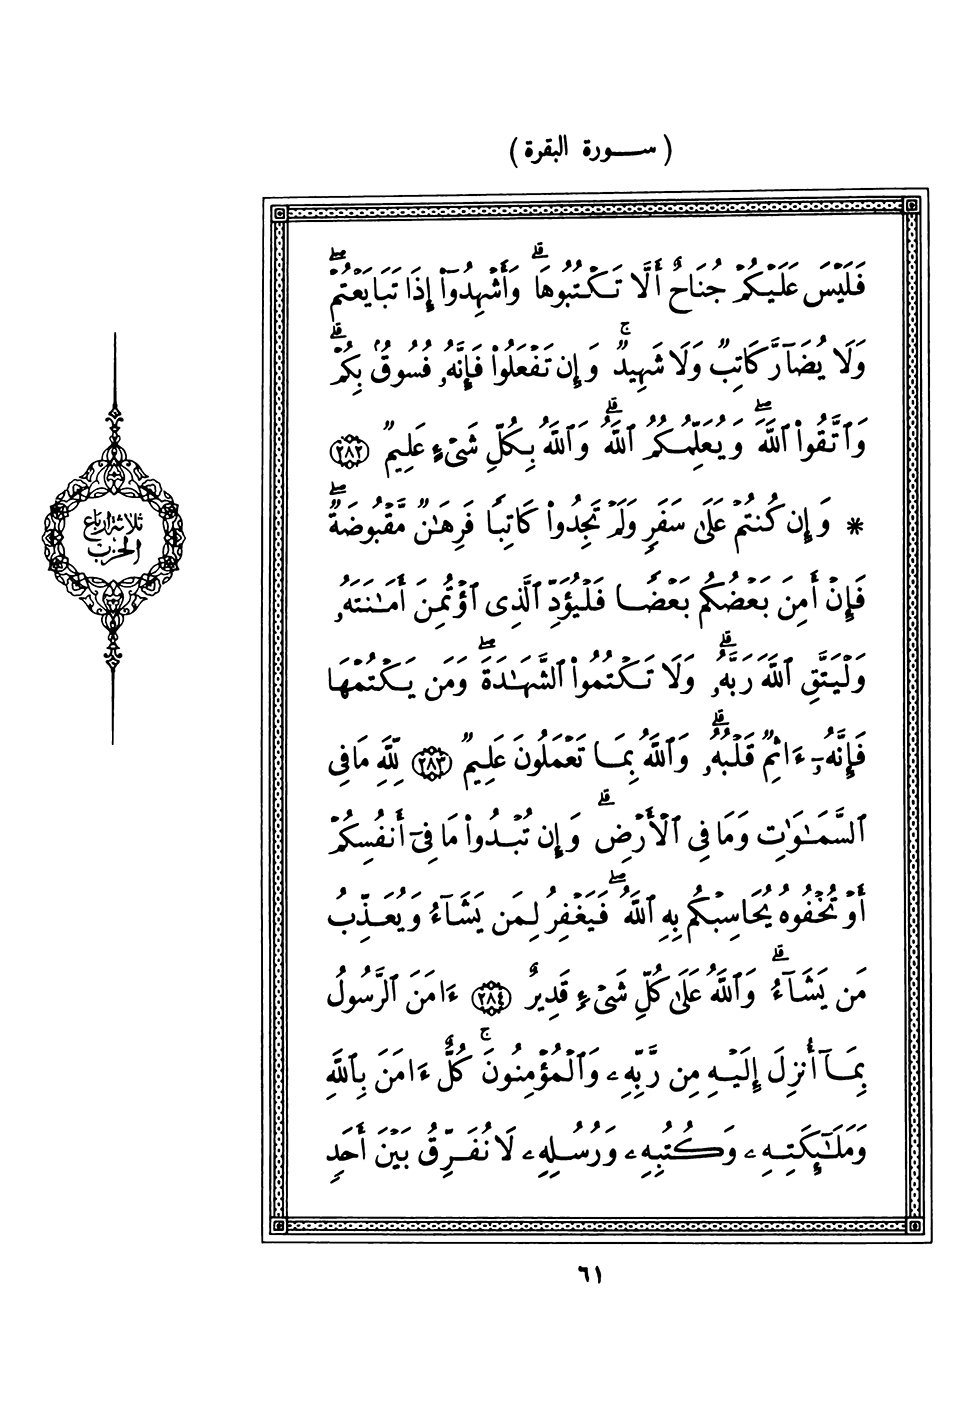 (سورة البقرة)
فَلَيۡسَ عَلَيۡكُمۡ جُنَاحٌ أَلَّا تَكۡتُبُوهَاۗ وَأَشۡهِدُوٓاْ إِذَا تَبَايَعۡتُمۡۖ
وَلَا يُضَآرَّ كَاتِبٞ وَلَا شَهِيدٞۚ وَإِن تَفۡعَلُواْ فَإِنَّهُۥ فُسُوقُۢ بِكُمۡۗ
وَٱتَّقُواْ ٱللَّهَۖ وَيُعَلِّمُكُمُ ٱللَّهُۗ وَٱللَّهُ بِكُلِّ شَيۡءٍ عَلِيمٞ ٢٨٢
* وَإِن كُنتُمۡ عَلَىٰ سَفَرٖ وَلَمۡ تَجِدُواْ كَاتِبٗا فَرِهَٰنٞ مَّقۡبُوضَةٞۖ
فَإِنۡ أَمِنَ بَعۡضُكُم بَعۡضٗا فَلۡيُؤَدِّ ٱلَّذِي ٱؤۡتُمِنَ أَمَٰنَتَهُۥ
وَلۡيَتَّقِ ٱللَّهَ رَبَّهُۥۗ وَلَا تَكۡتُمُواْ ٱلشَّهَٰدَةَۖ وَمَن يَكۡتُمۡهَا
فَإِنَّهُۥٓ ءَاثِمٞ قَلۡبُهُۥۗ وَٱللَّهُ بِمَا تَعۡمَلُونَ عَلِيمٞ ٢٨٣ لِّلَّهِ مَا فِي
ٱلسَّمَٰوَٰتِ وَمَا فِي ٱلۡأَرۡضِۗ وَإِن تُبۡدُواْ مَا فِيٓ أَنفُسِكُمۡ
أَوۡ تُخۡفُوهُ يُحَاسِبۡكُم بِهِ ٱللَّهُۖ فَيَغۡفِرُ لِمَن يَشَآءُ وَيُعَذِّبُ
مَن يَشَآءُۗ وَٱللَّهُ عَلَىٰ كُلِّ شَيۡءٖ قَدِيرٌ ٢٨٤ ءَامَنَ ٱلرَّسُولُ
بِمَآ أُنزِلَ إِلَيۡهِ مِن رَّبِّهِۦ وَٱلۡمُؤۡمِنُونَۚ كُلٌّ ءَامَنَ بِٱللَّهِ
وَمَلَٰٓئِكَتِهِۦ وَكُتُبِهِۦ وَرُسُلِهِۦ لَا نُفَرِّقُ بَيۡنَ أَحَدٖ
ثلاثة أرباع
الحزب
٦١